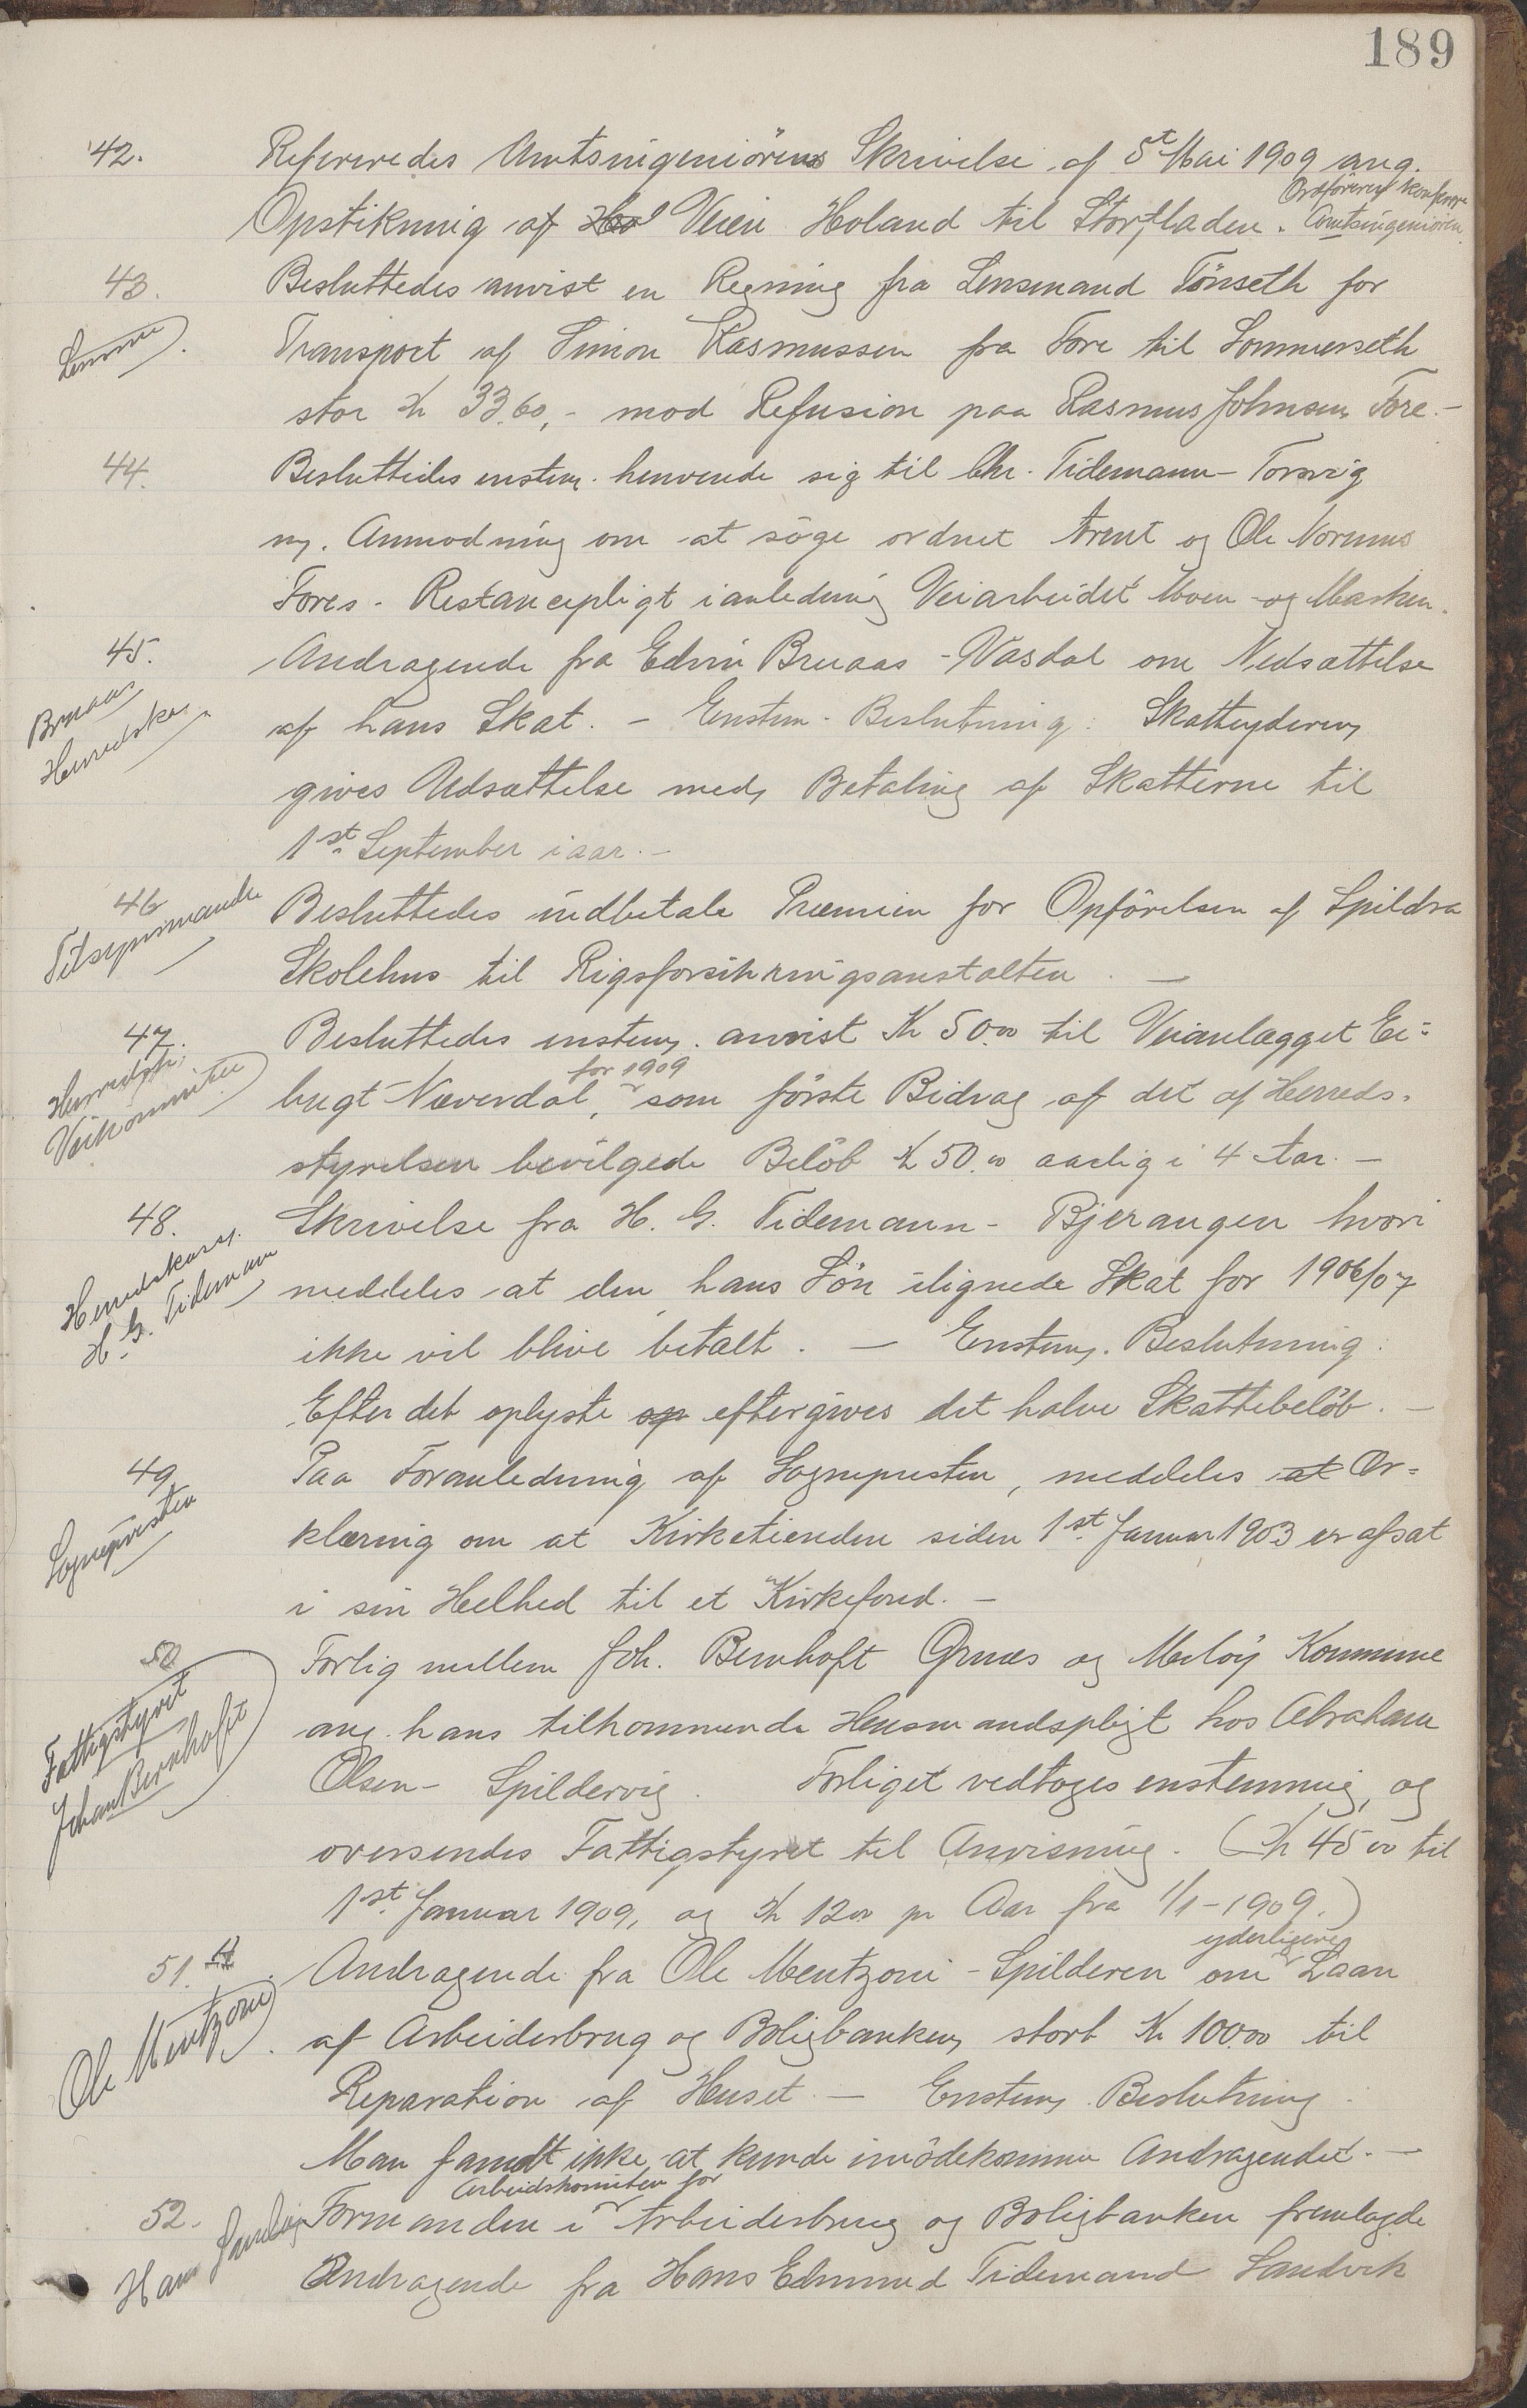 189
42. Refereredes Amtsingeniörens Skrivelse af 5t Mai 1909 ang.
Ordföreren konferere
Opstikning af Veien Holand til Storfladen. Amtsingeniören.
43. Besluttedes anvist en Regning fra Lensmand Tönseth for
Lensm.
Transport af Simon Rasmussen fra Fore til Sommerseth
stor Kr 33.60,- mod Refusion paa Rasmus Johnsen Fore.-
44. Besluttedes enstem. henvende sig til Chr. Tidemann - Torsvig
m. Anmodning om at söge ordnet Arent og Ole Normms
Fores - Restancepligt ianledning Veiarbeidet Moen og Marken.
45. Andragende fra Edvin Bruaas - Vasdal om Nedsættelse
Bruaas
Herredskas.
af hans Skat. - Enstem. Beslutning: Skatteyderen
gives Udsættelse med Betaling af Skatterne til
1st September iaar.-
46 Besluttedes indbetale Præmien for Opförelsen af Spildra
Tilsynsmanden
Skolehus til Rigsforsikringsanstalten. -
47. Besluttedes enstem. anvist Kr 50.00 til Veianlægget Ei-
Herredsk.
Veikomiteen
for 1909
bugt - Næverdal, som förste Bidrag af det af Herreds-
styrelsen bevilgede Belöb Kr 50.00 aarlig i 4 Aar. -
48. Skrivelse fra H. G. Tidemann - Bjerangen hvori
Herredskass.
H. G. Tidemann
meddeles at den hans Sön ilignede Skat for 1906/07
ikke vil blive betalt. - Enstem. Beslutning:
Efter det oplyste op eftergives det halve Skattebelöb. -
49 Paa Foranledning af Sognepresten, meddeles at Er-
Sognepresten
klæring om at Kirketienden siden 1st Januar 1903 er afsat
i sin Helhed til et Kirkefond. -
50 Forlig mellem Joh. Bernhoft Grnæs og Melöy Kommune
Fattigstyret
Johan Bernhoft
ang. hans tilkommende Husmandspligt hos Abraham
Olsen - Spildervig. Forliget vedtoges enstemmig, og
oversendes Fattigstyret til Anvisning. (Kr 45 00 til
1st Januar 1909, og Kr 1200 pr Aar fra 1/1 - 1909.)
yderligere
51. Andragende fra Ole Mentzoni - Spilderen om Laan
Ole Mentzoni
af Arbeiderbrug og Boligbanken stort Kr 100.00 til
Reparation af Huset - Enstem. Beslutning.
Man fandt ikke at kunde imödekomme Andragendet. -
Arbeidskomiteen for
52. Formanden i Arbeiderbrug og Boligbanken fremlagde
Hans Sandvig
Andragende fra Hans Edmund Tidemand Sandvik